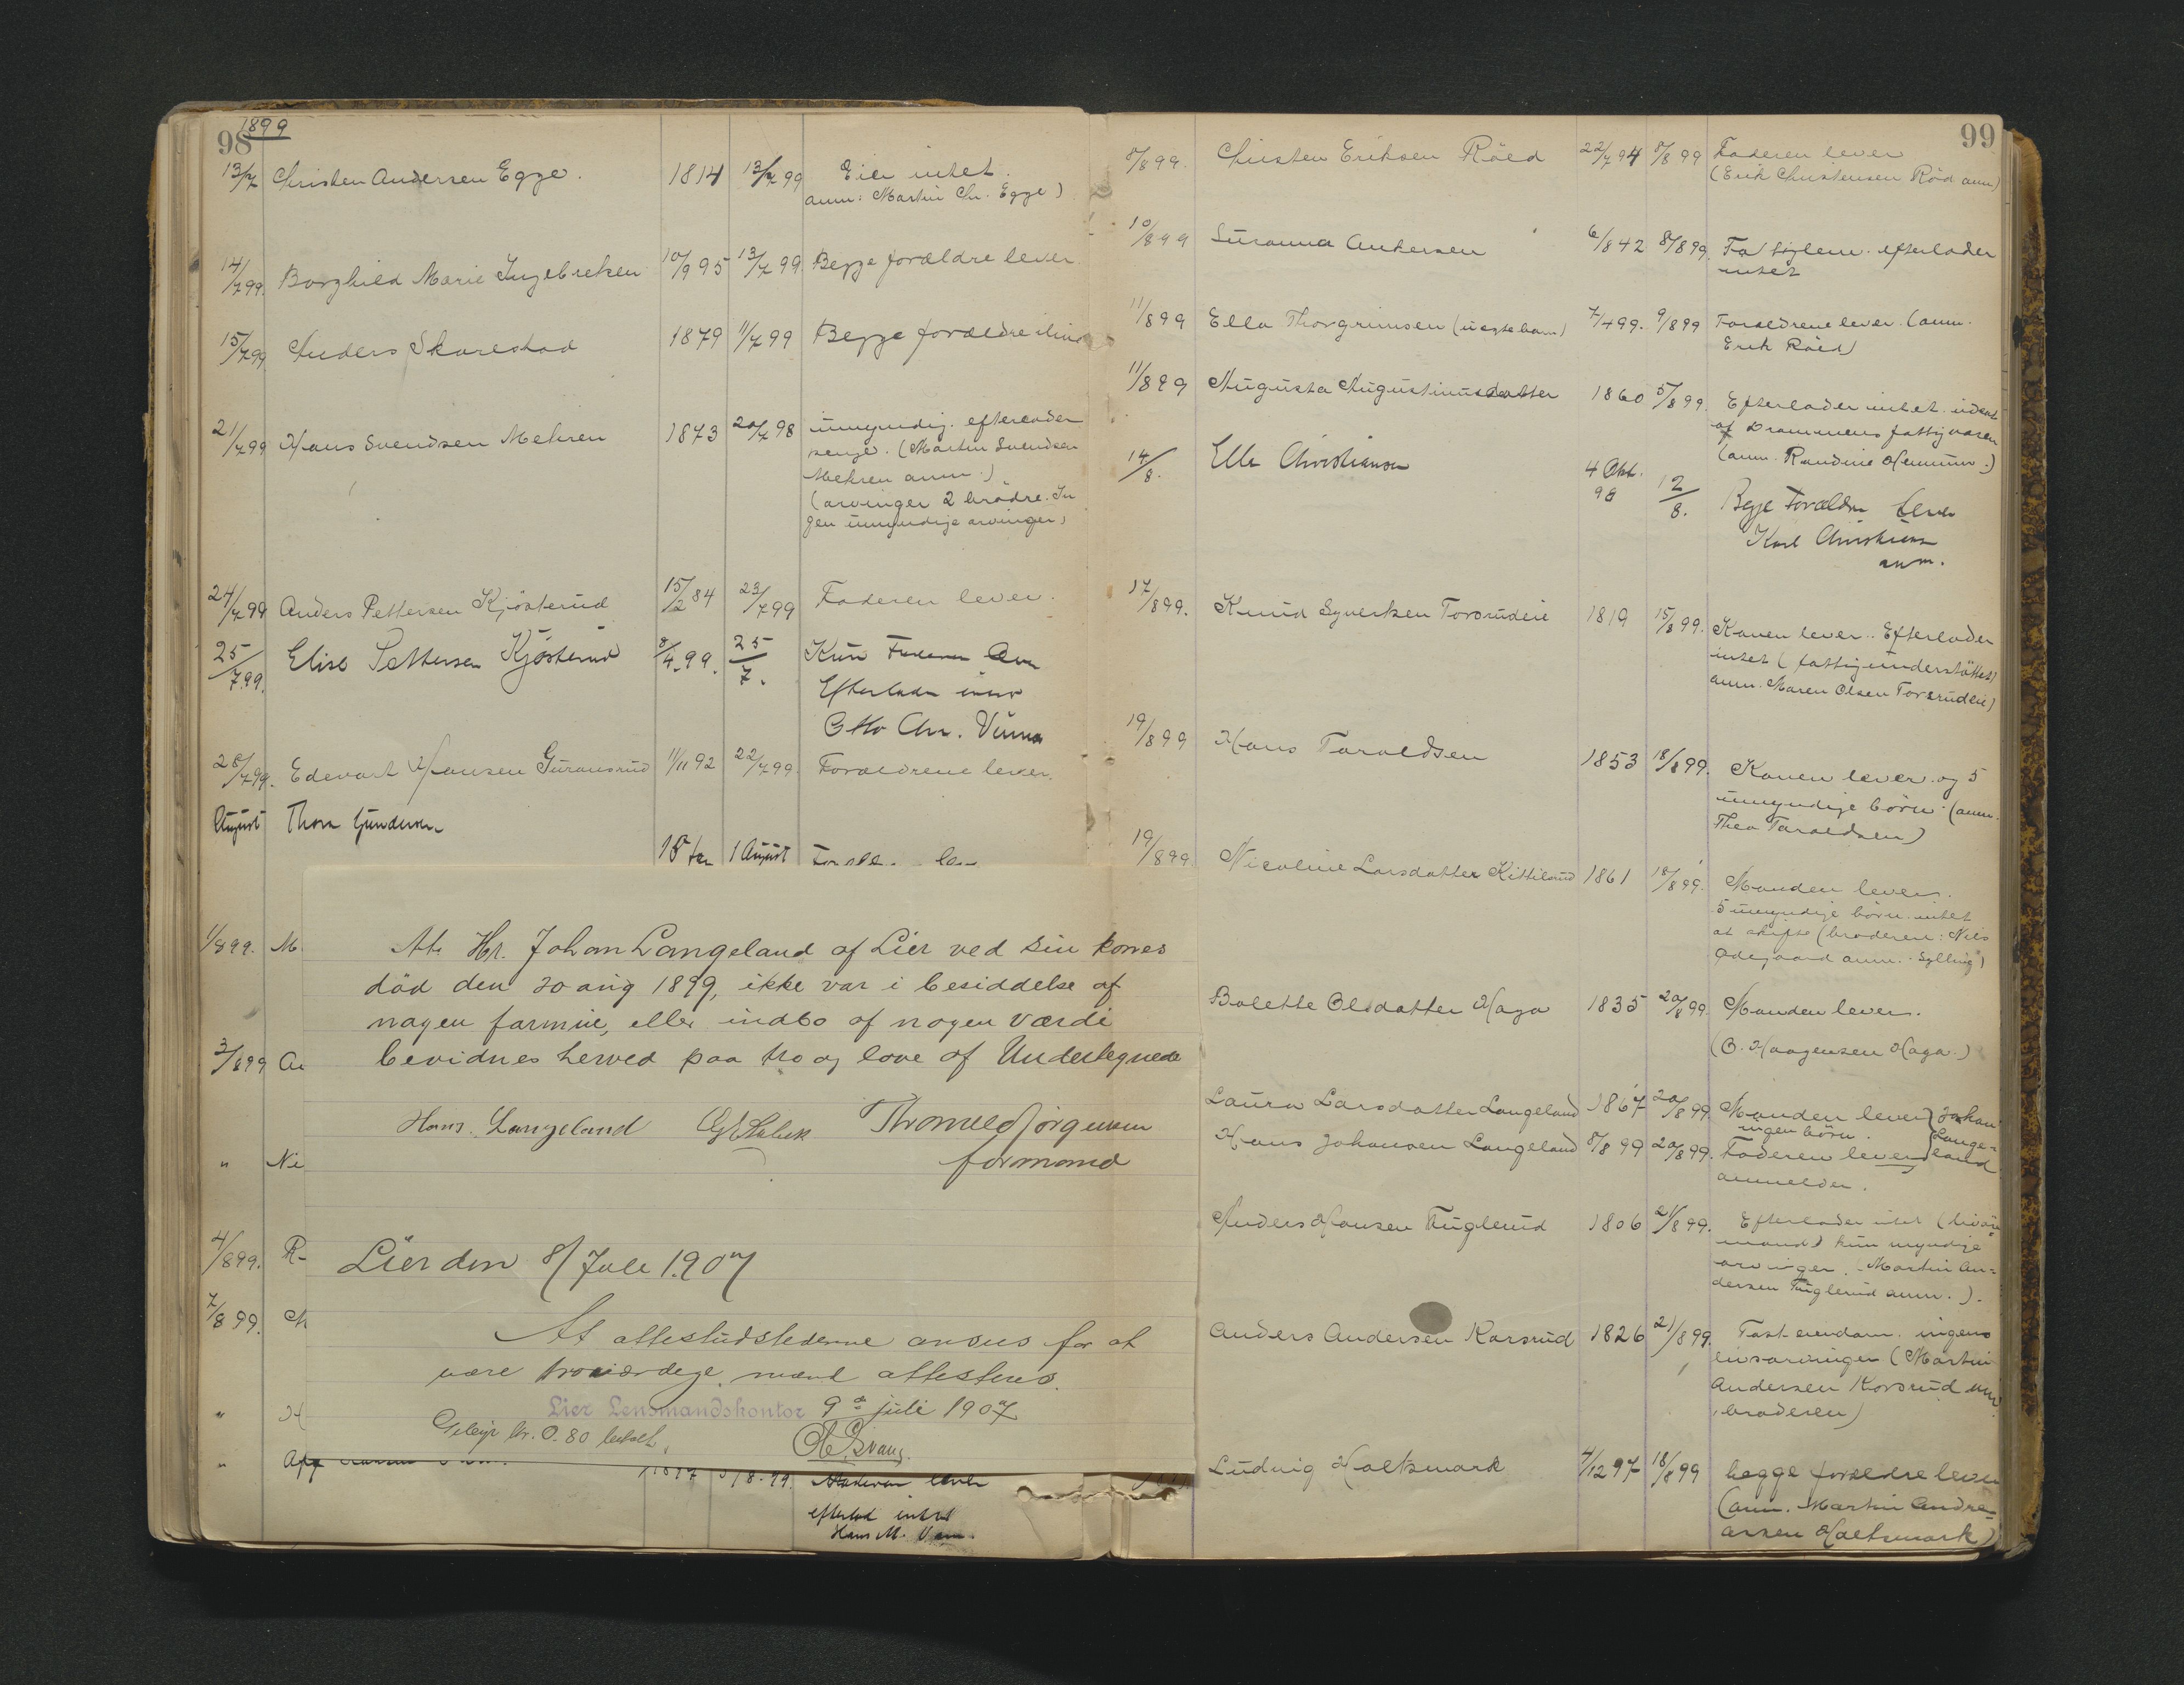 1899
98
13/7 Christen Andersen Egge. 1814 13/7 99 Eier intet.
anm: Martin Chr. Egge)
14/7 99. Borghild Marie Ingebretsen 10/9 95 13/7 99 Begge forældre lever
15/7 99 Anders Skarestad 1879 11/7 99 Begge forældre
21/7 99 Hans Svendsen Mehren 1873 20/7 98 umyndig. efterlader
penge. (Martin Svendsen
Mehren anm.)
(arvinger 2 brødre. In
gen umyndige arvinger)
24/7 99 Anders Pettersen Kjösterud 15/2 84 23/7 99 Faderen lever.
25/7 99. Elise Pettersen Kjösterud 8/4. 99. 25/7. Kun Faderen
Efterlader
Otto Chr. Vinna
28/7 99. Edevart Hansen Guransrud 11/11 92 22/7 99. Forældrene lever.
August Thora Gundersen
1 August
1/8 99. M
3/8 99 A
" Ni
4/8 99. R
7/8 99.
" H
"
At Hr. Johan Langeland af Lier ved sin kones
död den 20 aug 1899, ikke var i besiddelse af
nogen formue, eller indbo af nogen Værdi
bevidnes herved paa tro og love af Undertegnede
Hans Langeland Thorvald Jörgensen
formand
Lier den 8/ Juli 1907
At attestudstederne ansees for at
være troværdige mænd attesteres.
Lier Lensmandskontor 9de juli 1907
Gebyr kr. 0.80 betalt.
1897 8.99. Moderen lever
efterlod intet
Hans M.
99
8/8 99. Christen Eriksen Röed 22/7 94 8/8 99 Faderen lever
(Erik Christensen Röd anm)
10/8 99 Susanna Andersen 6/8 42 8/8 99. Fattiglem. efterlader
intet
11/8 99 Ella Thorgrimsen (uegte barn) 7/4 99. 9/8 99 Forældrene lever. (anm.
Erik Röed)
11/8 99 Augusta Augustinusdatter 1860 5/8 99. Efterlader intet. udsat
af Drammens fattigvæsen
(anm. Randine
14/8. Elle Christiansen 4 Okt. 98 12/8. Begge Forældre lever
Karl Christiansen
anm.
17/8 99. Knud Syvertsen Torsrudeie 1819 15/8 99. Konen lever. Efterlader
intet (fattigunderstöttet)
anm. Maren Olsen Torsrudeie)
19/8 99 Hans Taraldsen 1853 18/8 99. Konen lever og 5
umyndige börn. (anm.
Thea Taraldsen)
19/8 99 Nicoline Larsdatter Kittilsrud 1861 18/8 99. Manden lever.
5 umyndige börn. intet
at skifte (broderen: Nils
Ödegaard anm. Sylling)
Bolette Olsdatter Haga 1835 20/8 99 Manden lever.
(O. Haagensen Haga.)
Laura Larsdatter Langeland 1867 20/8 99. Manden lever Johan
ingen börn. Lange=
Hans Johansen Langeland 8/8 99 20/8 99. Faderen lever land
anmelder.
Anders Hansen Fuglerud 1806 21/8 99. Efterlader intet (livöre=
mand) kun myndige
arvinger. Martin An=
dersen Fuglerud anm.).
Anders Andersen Korsrud 1826 21/8 99. Fast eiendom. ingen
livsarvinger (Martin
Andersen Korsrud anm
broderen)
Ludvig Holtsmark 4/12 97 18/8 99 begge forældre lever
(anm. Martin Andre=
assen Holtsmark)